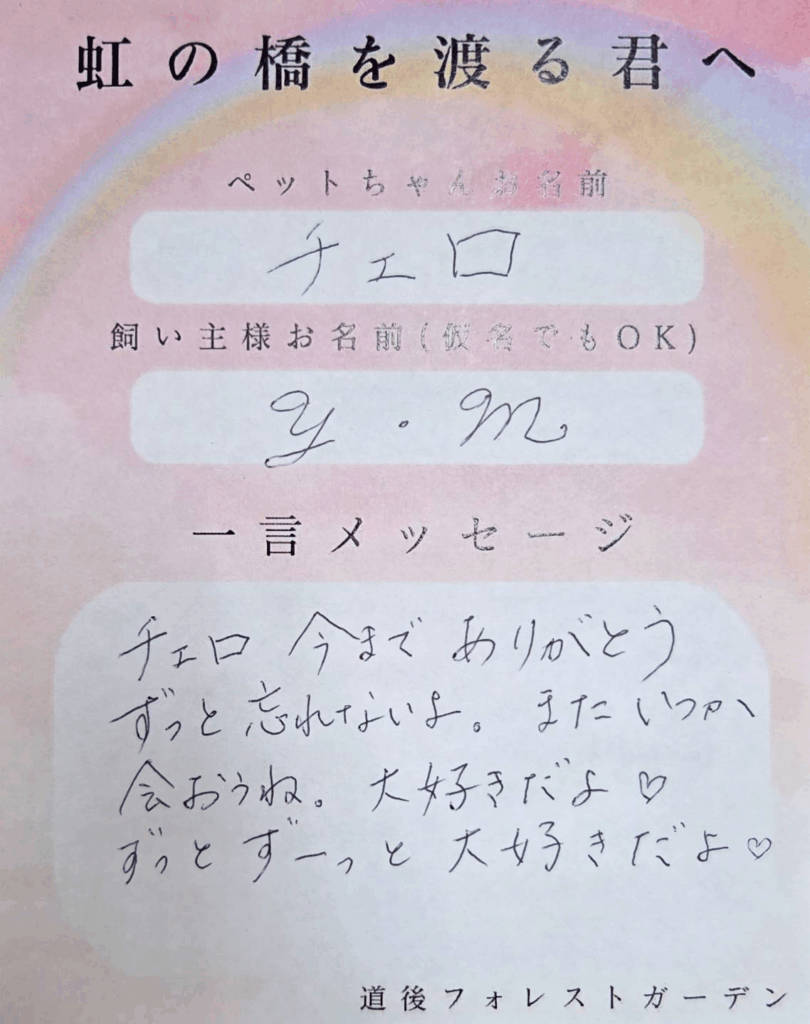 虹の橋を渡る君へ
ペットちゃんお名前
チェロ
飼い主様お名前(仮名でもOK)
y・m
一言メッセージ
チェロ 今まで ありがとう
ずっと忘れないよ。またいつか
会おうね。大好きだよ♡
ずっとずーっと大好きだよ♡
道後フォレストガーデン